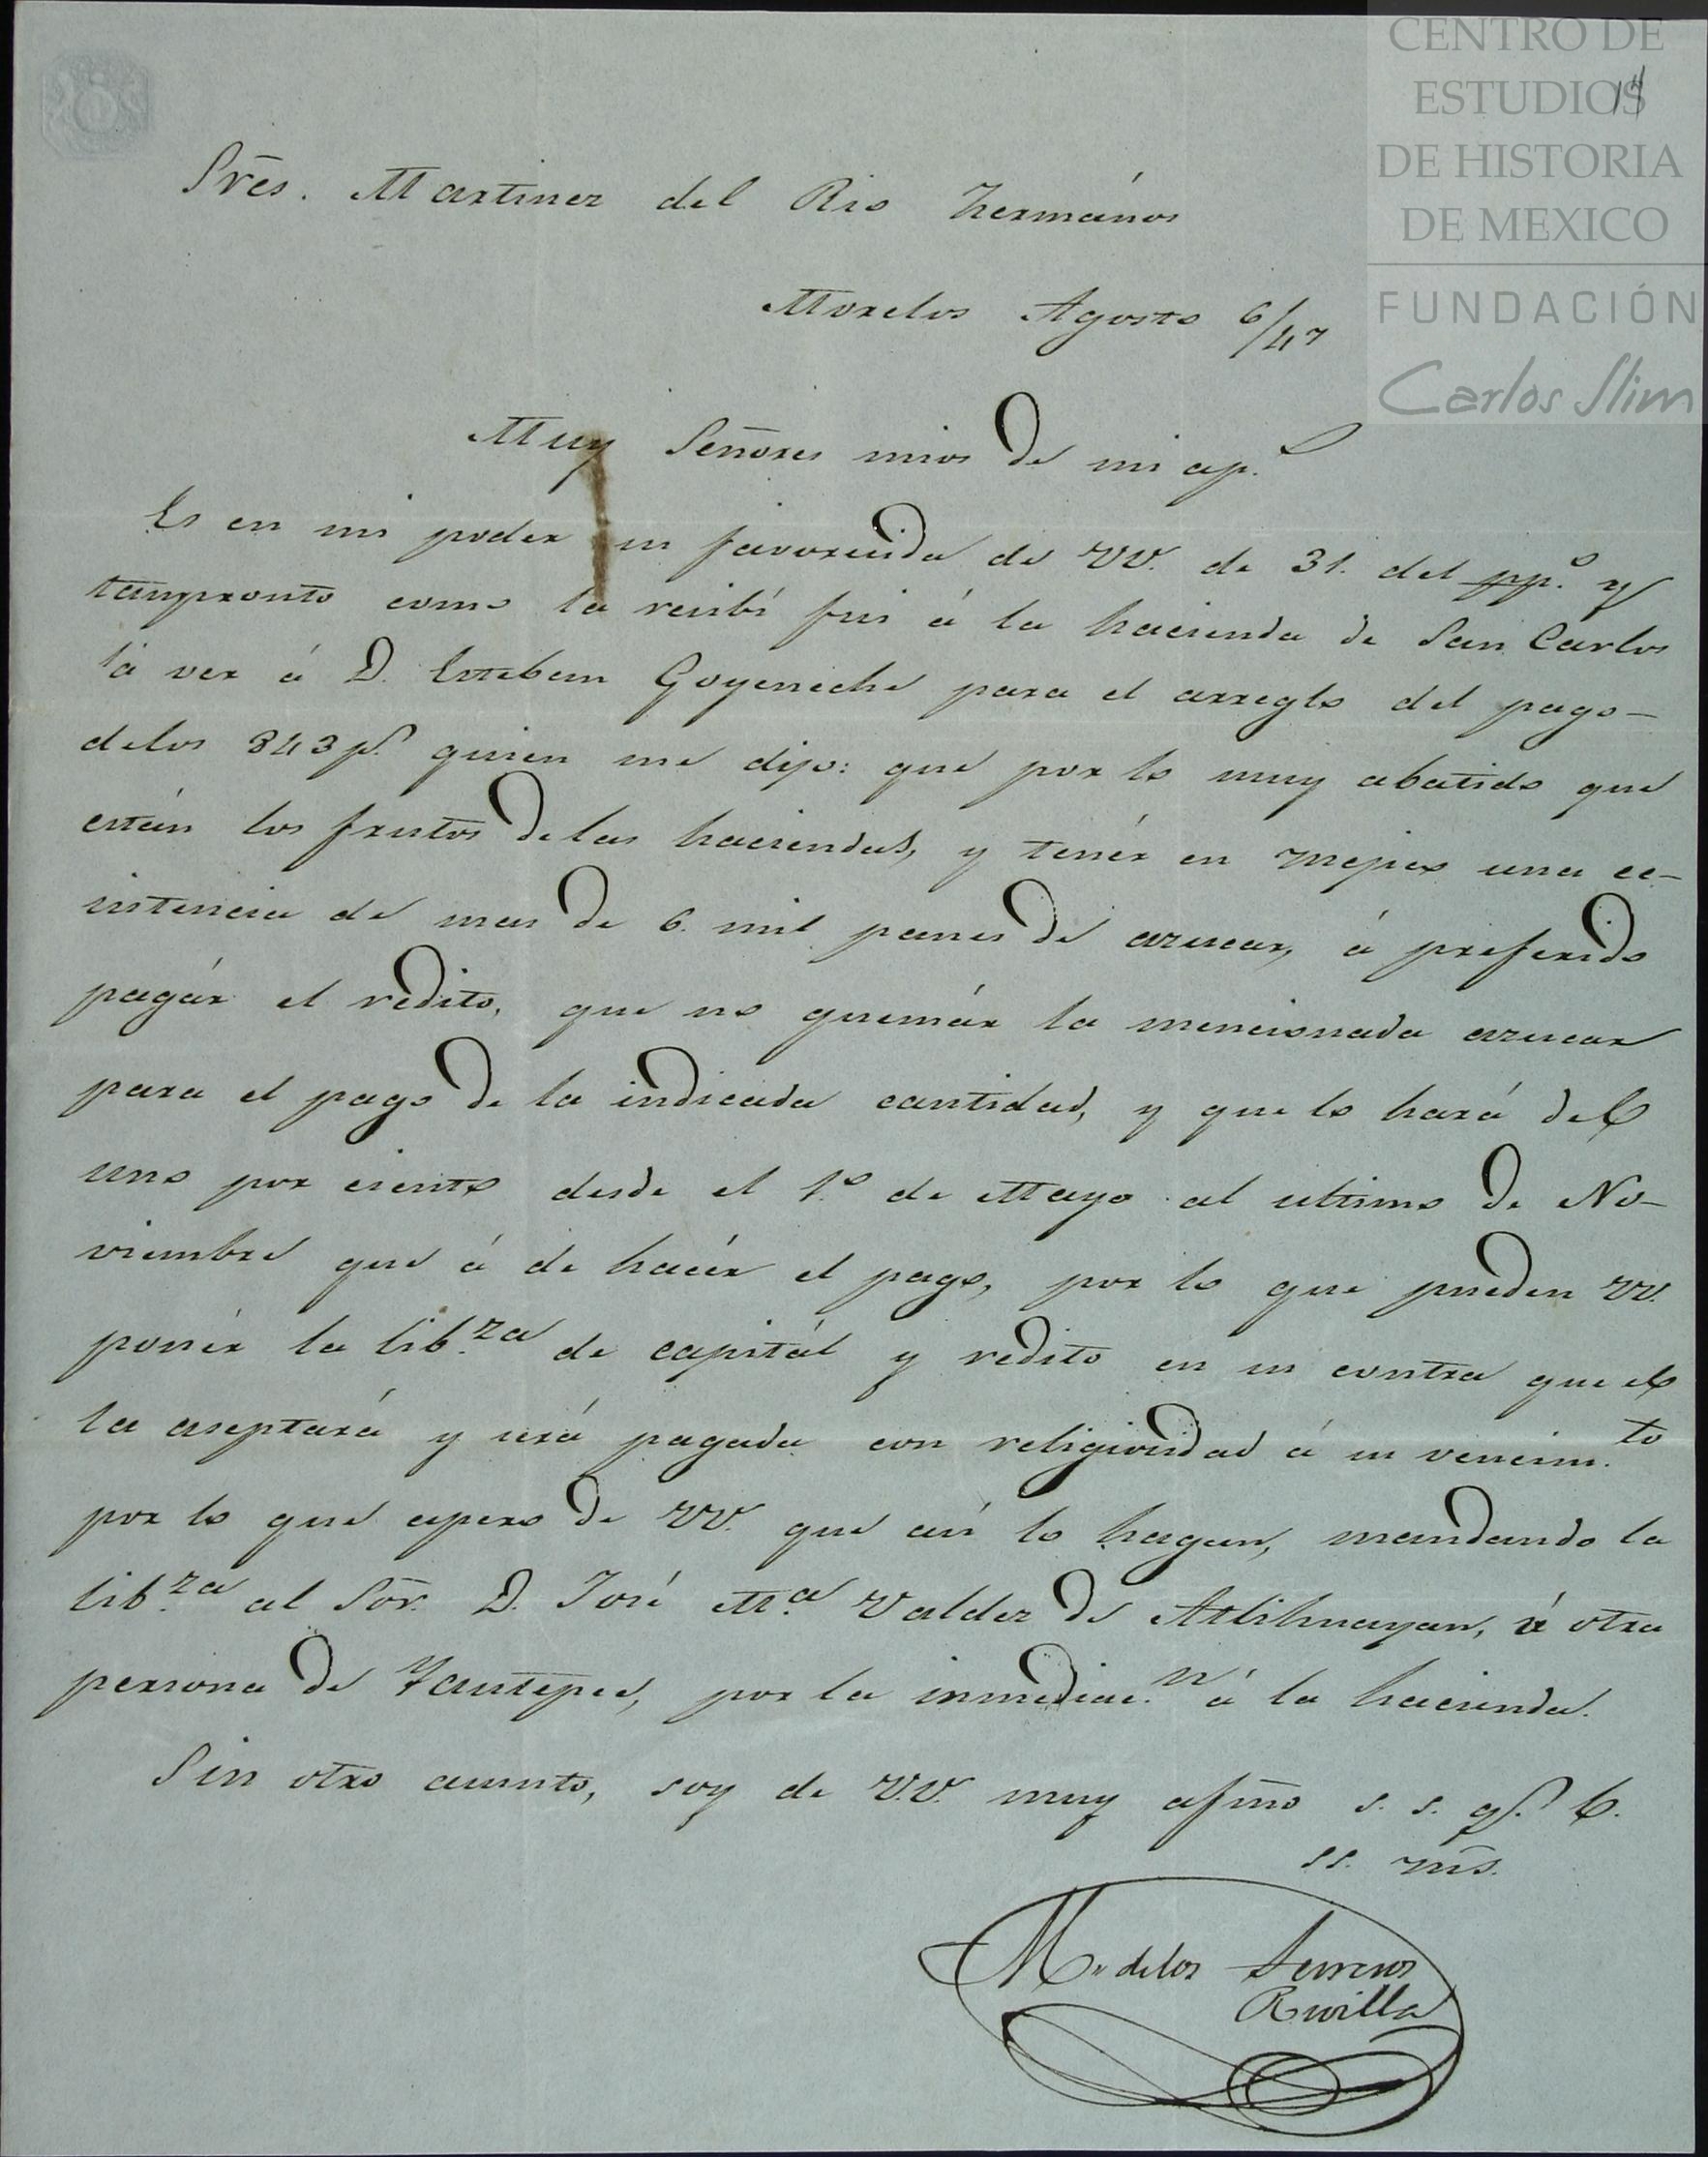 CENTRO DE
ESTUDIOS
DE HISTORIA
DE MEXICO
FUNDACIÓN
Carlos Slim
14
Sres. Martinez del Rio hermános
Morelos Agosto 6/47
Muy Señores mios de mi ap.o
Es en mi poder su favorecida de VV. de 31. del pp.o y
tanpronto como la recibí fui á la hacienda de San Carlos
á ver á D. Esteban Goyeneche para el arreglo del pago-
delos 343 p.s quien me dijo: que por lo muy abatido que
están los frutos de las haciendas, y tenér en Mejico una ec-
sistencia de mas de 6. mil panes de azucar, á preferido
pagár el redito, que no quemár la mencionada azucar
para el pago de la indicada cantidad, y que lo hará del
uno por ciento desde el 1.o de Mayo al ultimo de No-
viembre que á de hacér el pago, por lo que pueden VV.
ponér la lib.za de capitál y redito en su contra que el
la aseptará y será pagada con religiosidad á su vencim.to
por lo que espero de VV. que así lo hagan, mandando la
lib.za al Sor. D. José M.a Valdez de Atlihuayan, ú otra
persona de Yautepec, por la inmediac.n á la hacienda.
Sin otro asunto, soy de V.V. muy afmo s. s. q.e b.
ss. ms.
M. delos
Revilla